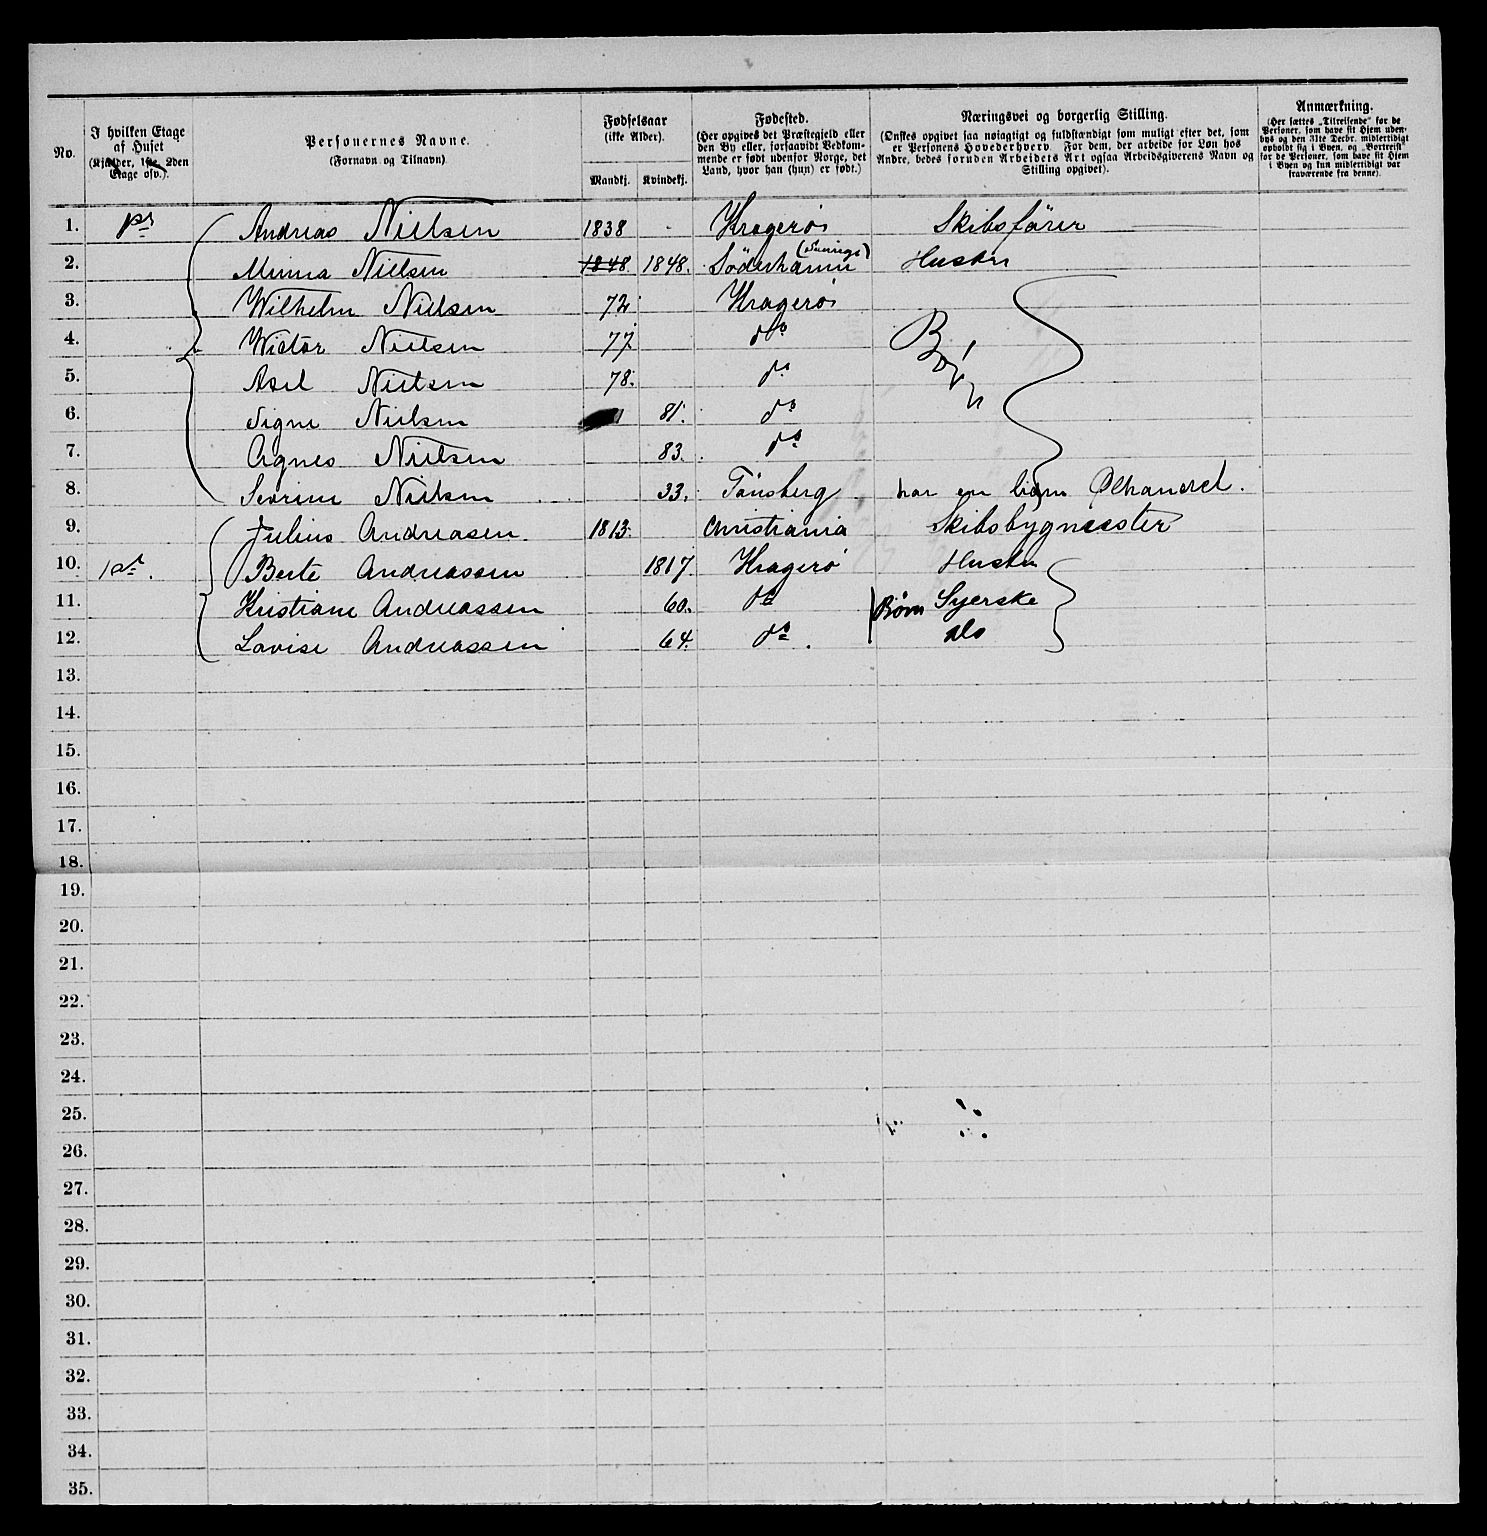 No. I hvilken Etage af Huset (Kjælder, 1ste, 2den Etage osv.). Personernes Navne. (Fornavn og Tilnavn) Fødselsaar (ikke Alder). Mandkj. Kvindekj. Fødested. (Her opgives det Præstegjeld eller den By eller, forsaavidt Vedkommende er født udenfor Norge, det Land, hvor han (hun) er født.) Næringsvei og borgerlig Stilling. (Ønskes opgivet saa nøiagtigt og fuldstændigt som muligt efter det, som er Personens Hovederhverv. For dem, der arbeide for Løn hos Andre, bedes foruden Arbeidets Art ogsaa Arbeidsgiverens Navn og Stilling opgivet). Anmærkning. (Her sættes „Tilreisende" for de Personer, som have sit Hjem udenbys og den 31te Decbr. midlertidigt opholdt sig i Byen, og „Bortreist" for de Personer, som have sit Hjem i Byen og kun midlertidigt var fraværende fra denne).
1. Andreas Nielsen 1838 Kragerø Skibsfører
2. Minna Nielsen 1848 1848. Söderhamn (Sverige) Hustru
3. Wilhelm Nielsen 72 Kragerø
4. Wictor Nielsen 77 do Børn
5. Axel Nielsen 78. do
6. Signe Nielsen 81. do
7. Agnes Nielsen 83. do
8. Sevrine Nielsen 33. Tönsberg har en liden Ølhandel.
9. Julius Andreasen. 1813. Christiania Skibsbygmester
10. 1ste. Berte Andreassen 1817. Kragerø Hustru
11. Kristiane Andreassen 60. do Børn Syerske
12. Lovise Andreassen 64. do. do
13.
14.
15.
16.
17.
18.
19.
20.
21.
22.
23.
24.
25.
26.
27.
28.
29.
30.
31.
32.
33.
34.
35.